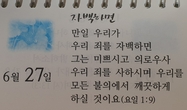 자백하면
만일 우리가
우리 죄를 자백하면
그는 미쁘시고 의로우사
우리 죄를 사하시며 우리를
모든 불의에서 깨끗하게
하실 것이요(요일 1:9)
6월 27일